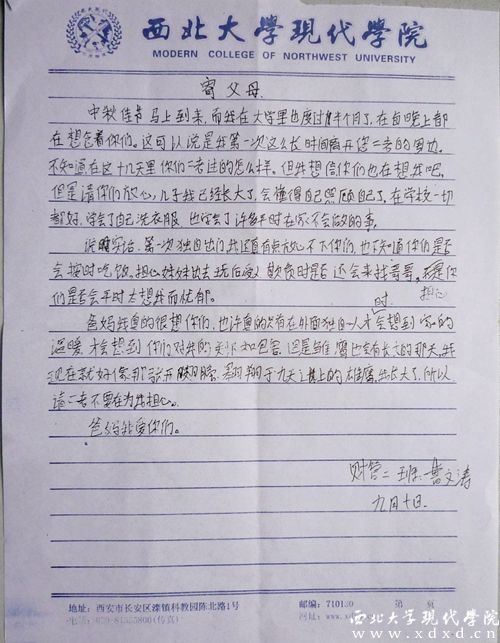 西北大学现代学院
MODERN COLLEGE OF NORTHWEST UNIVERSITY
寄父母
中秋佳节马上到来,而我在大学里也度过半个月了,在每晚上都
在想念着你们。这可以说是我第一次这么长时间离开您二老的周边。
不知道在这十几天里你们二老过的怎么样。但我想信你们也在想我吧,
但是请你们放心,儿子我已经长大了,会懂得自己照顾自己了,在学校一切
都好,学会了自己洗衣服,也学会了许多平时在家不会做的事。
说实话,第一次独自出门我还真有点放心不下你们,也不知道你们是否
会按时吃饭,担心妹妹出去玩后没人欺负时是否还会来找哥哥,担心
你们是否会平时太想我而忧郁。
爸妈我真的很想你们,也许真的只有在外面独自一人时才会想到家的
温暖,才会想到你们对我的关怀和包容,但是雏鹰也会有长大的那天,我
现在就好像那张开翅膀,翱翔于九天之上的雄鹰,我长大了,所以
请二老不要在为我担心。
爸妈我爱你们。
财管二班:鲁文涛
九月十日.
地址:西安市长安区滦镇科教园陈北路1号
邮编:710130
第 页
电话:029-81555800(传真)
西北大学现代学院
www.xdxd.cn